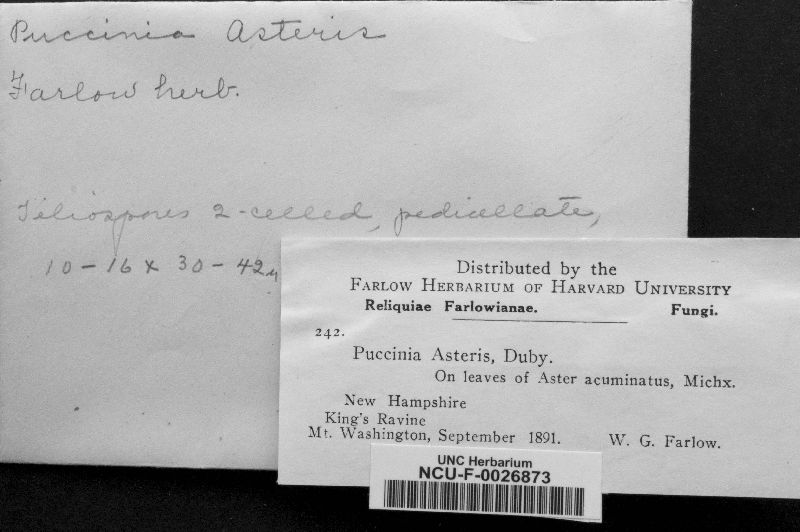 Puccinia Asteris
Farlow herb.
Teliospores 2-celled, pedicellate,
10-16 x 30-42µ
Distributed by the
Farlow Herbarium of Harvard University
Reliquiae Farlowianae. Fungi.
242.
Puccinia Asteris, Duby.
On leaves of Aster acuminatus, Michx.
New Hampshire
King's Ravine
Mt. Washington, September 1891. W. G. Farlow.
UNC Herbarium
NCU-F-0026873